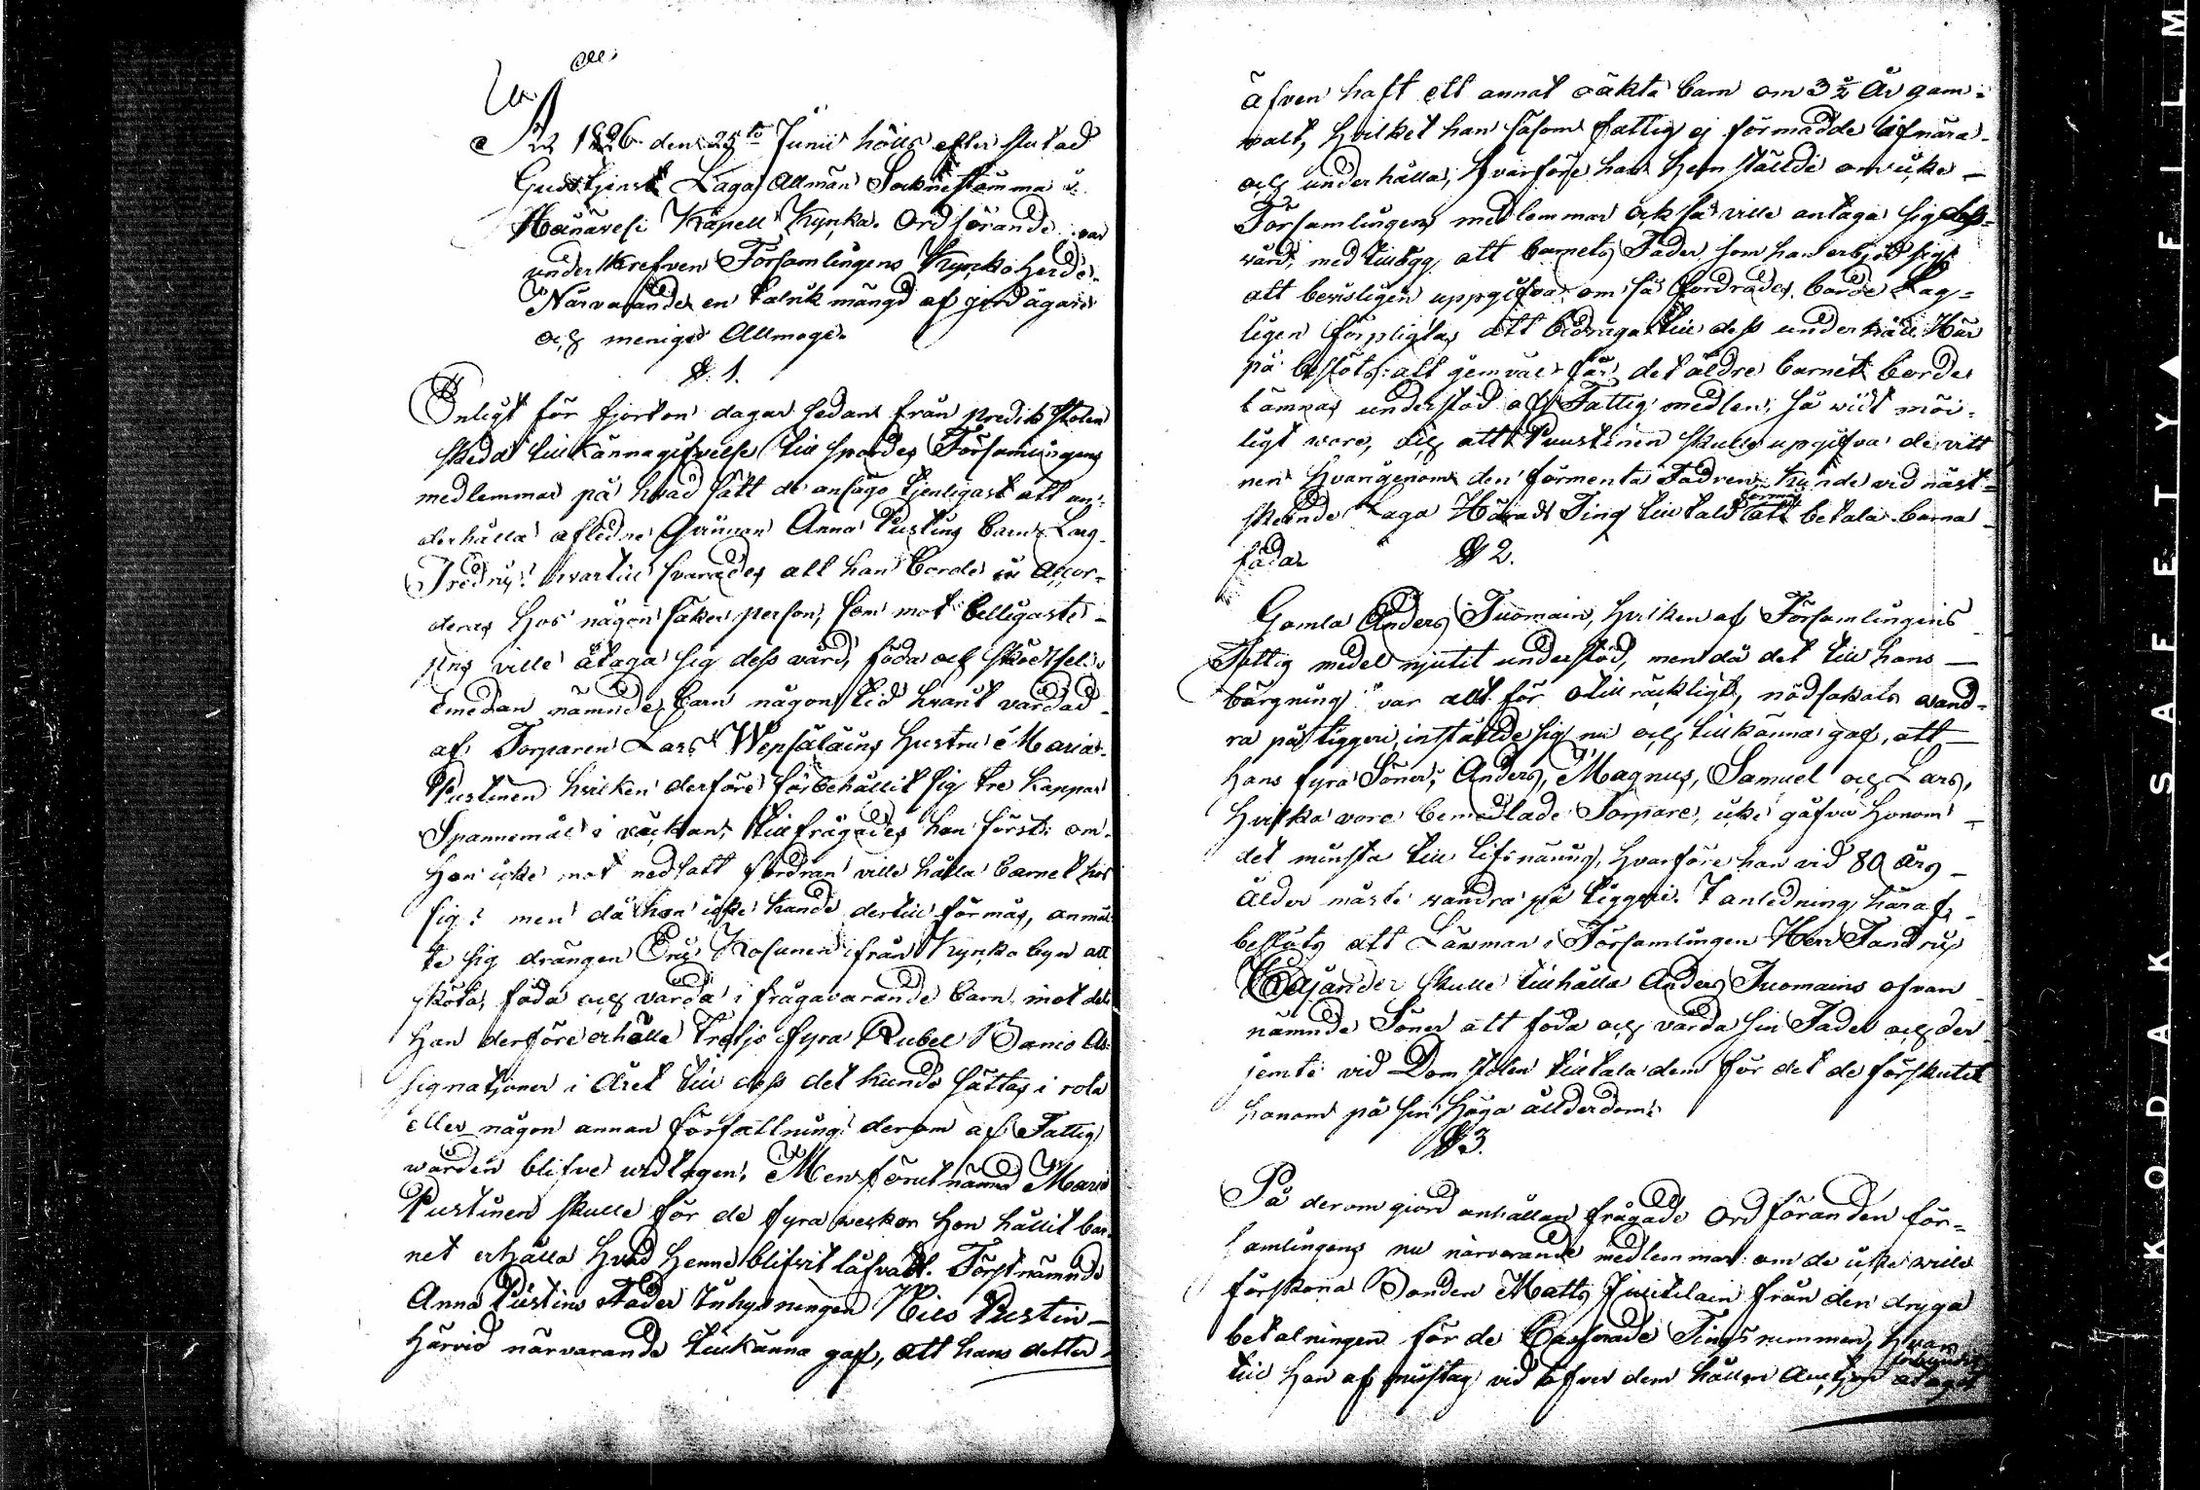 År 1826 den 25to Junii hölls efter slutad
Gudstjenst Laga Allmän Sockne stämma i
Haanävesi Kapell Kyrka. Ordförande var
underskrefven Församlingens Kyrkoherde.
Närvarande en talrik mängd af jordägare
och menige Allmoge.
§. 1.
Enligt för fjorton dagar sedan från predikstolen
skedd tillkännagifvelse tillspordes Församlingens
medlemmar på hvad sätt de ansågo tjenligast att un-
derhålla aflidne Qvinnan Anna Pustins barn Lars
Fredric? hvartill svarades att han borde in accor-
deras hos någon säker person, som mot billigaste
pris ville åtaga sig dess vård, föda och skötsel.
Emedan nämnde barn någon tid hvarit vårdad
af Torparen Lars Wepsäläins hustru Maria
Pustinen hvilken derföre förbehållit sig tre kappar
Spannemål i veckan, tillfrågades hon först: om
Hon icke mot nedsatt fordran ville hålla barnet hos
sig? men då hon icke kunde dertill förmås, anmäl-
te sig drängen Eric Kosunen ifrån Kyrko byn att
sköta, föda och vårda i frågavarande barn mot det
Han derföre erhålle Trettjo fyra Rubel Banco As-
signationer i Året till dess det kunde sättas i rota
eller någon annan författning derom af Fattig
wården blifve widtagen. Men förutnämnd Maria
Pustinen skulle för de fyra weckor Hon hållit bar-
net erhålla Hvad Henne blifvit låfvadt. Förstnämnde
Anna Pustins Fader Inhysningen Nils Pustin
Härvid närvarande tillkänna gaf, att hans dotter
äfven haft ett annat oäkta barn om 3 ½ År gam-
malt, Hvilket han såsom fattig ej förmådde lifnära
och underhålla, Hvarföre han Hemställde om icke
Församlingens medlemmar också ville antaga sig dess
vård, med tillägg att barnets Fader som han erbjöd sig
att bevisligen uppgifva om så fordrades, borde Lag-
ligen förpligtas att bidraga till dess underhåll. Här
på beslöts: att jemväl för det äldre barnet borde
lämnas understöd af Fattig medlen, så widt möj-
ligt wore, och att Puustinen skulle upgifva de vitt
nen Hvarigenom den förmenta Fadren kunde vid näst
skeende Laga Härads Ting tilltalas att betala barna
föda.
§ 2.
Gamla Anders Tuomain, Hvilken af Församlingens
Fattig medel njutit understöd, men då det till hans
bärgning var allt för otillräckligt, nödsakats wand-
ra på tiggeri, inställde sig nu och tillkänna gaf, att
Hans fyra Söner, Anders, Magnus, Samuel och Lars,
Hvilka voro bemedlade Torpare, icke gåfvo Honom
det minsta till lifsnäring, Hvarföre han vid 80 Års
ålder måste vandra på tiggeri. I anledning häraf
beslöts att Länsman i Församlingen Herr Fandric
Cajander skulle tillhålla Anders Tuomains ofvan
nämnde Söner att föda och vårda sin Fader och der
jemte vid Domstolen tilltala dem för det de förskutit
honom på sin höga ållderdom.
§ 3.
På derom giord anhållan frågade Ordföranden för-
samlingens nu närvarande medlemmar om de icke ville
förskona Bonden Matts från den dryga
betalningen för de Tings rummen, Hvar
till Han af misstag vid öfver dem hållen Auction åtagit